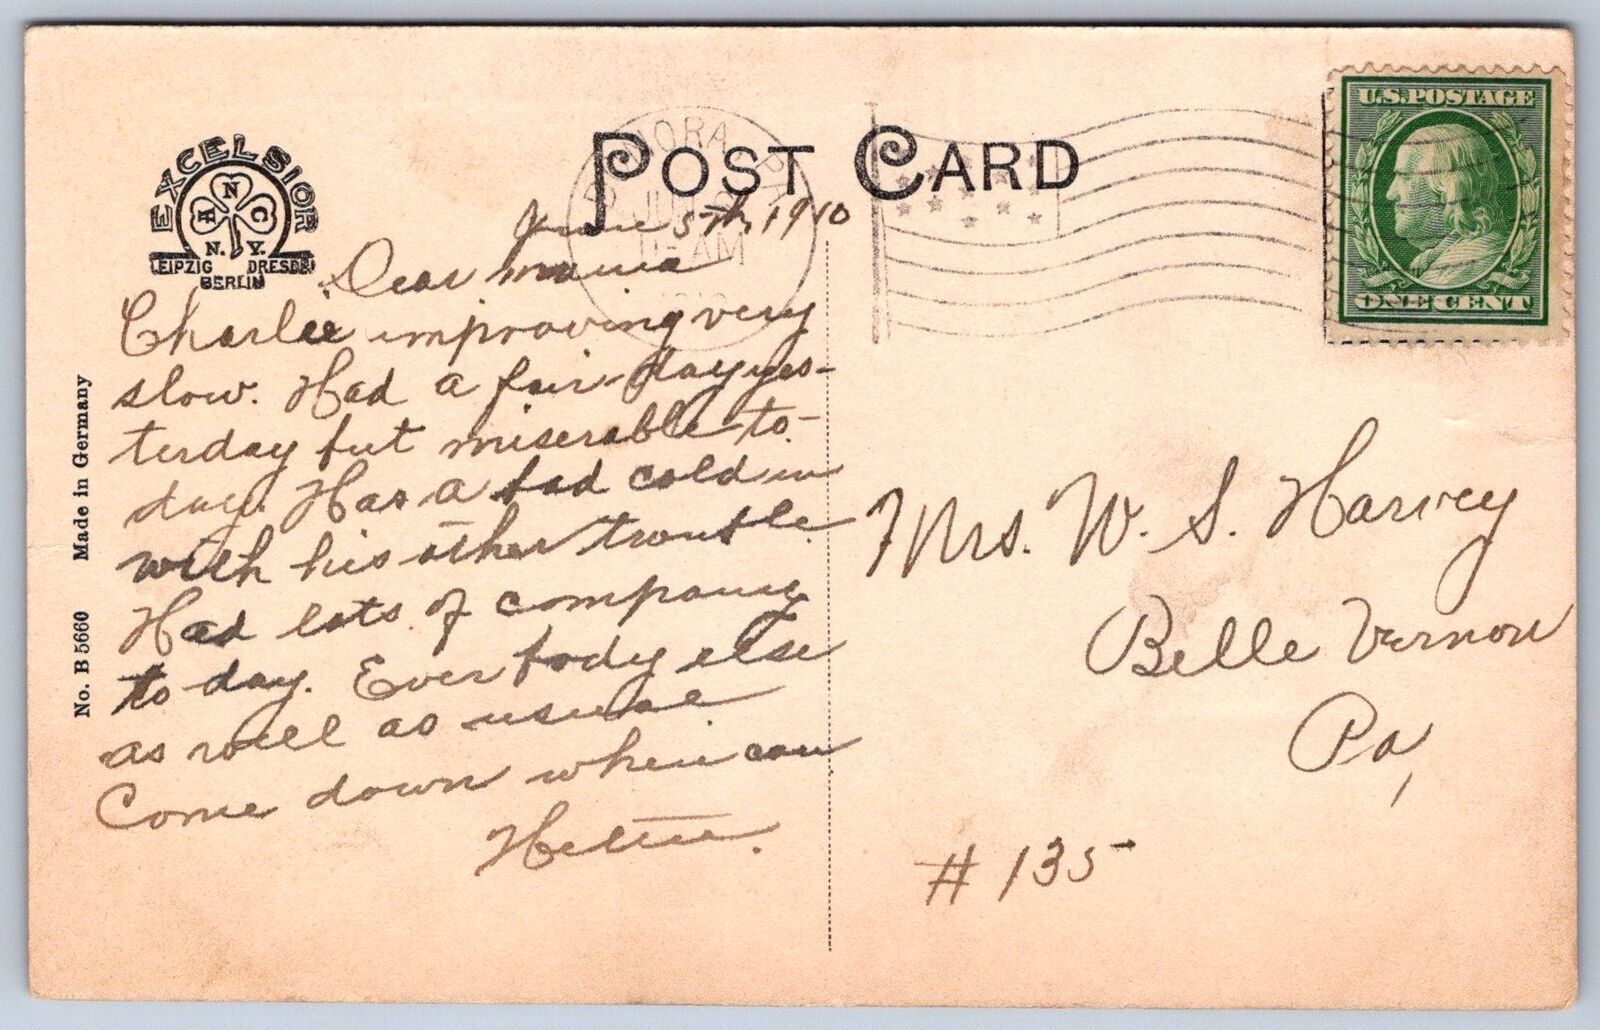 U.S. POSTAGE
ONE CENT
POST CARD
DONORA PA
JUN
AM
EXCELSIOR
A N C
N. Y.
LEIPZIG DRESDEN
BERLIN
No. B 5660 Made in Germany
June 5th, 1910
Dear mama
Charlie improving very
slow. Had a fair day yes-
terday but miserable to-
day. Has a bad cold in
with his other trouble.
Had lots of company
to day. Everbody else
as well as usual
Come down when can
Hettie.
Mrs. W. S. Harvey
Belle Vernon
Pa,
# 135